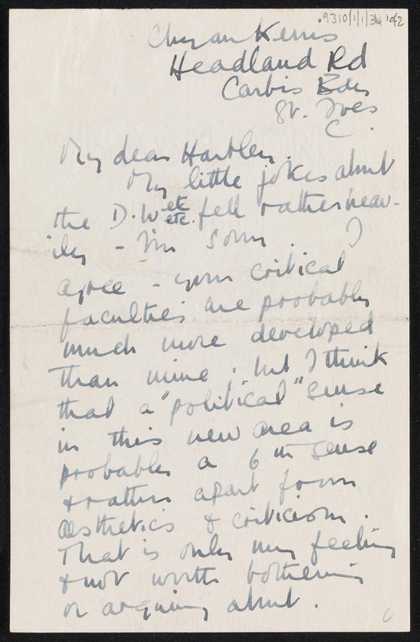 9310/1/1/34 1 of 2
Chy an Kerris
Headland Rd
Carbis Bay
St. Ives
C.
My dear Hartley.
My little jokes about
the D.W etc etc. fell rather heav-
ily - I'm sorry. I
agree - your critical
faculties are probably
much more developed
than mine, but I think
that a "political" sense
in this new area is
probably a 6th sense
& rather apart from
aesthetics & criticism.
That is only my feeling
& not worth bothering
or arguing about.